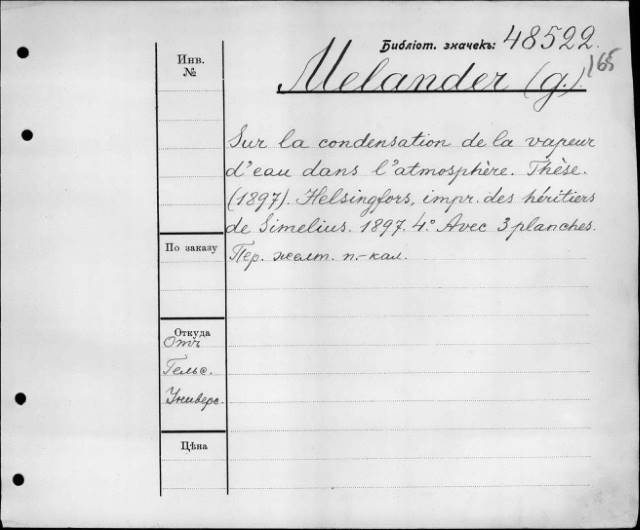 Библіот. значекъ: 48522.
165
Инв. №
Melander (G.)
Sur la condensation de la vapeur
d'eau dans l'atmosphère. Thèse.
(1897). Helsingfors, impr. des héritiers
de Simelius. 1897. 4º. Avec 3 planches.
Пер. желт. п.-кал.
По заказу
Откуда
Отъ
Гельс.
Универс.
Цѣна